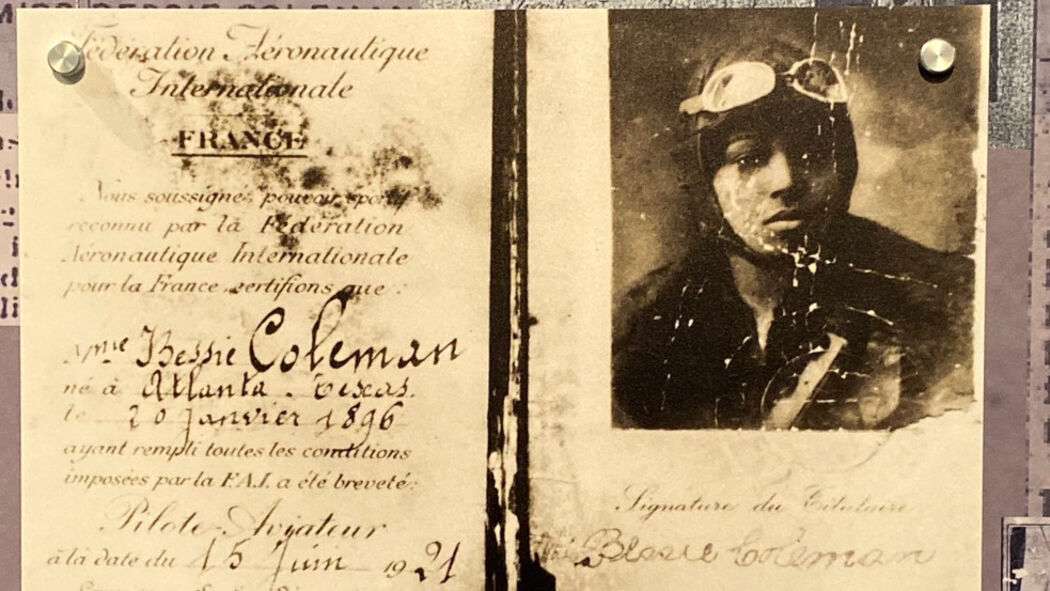 Fédération Aéronautique
Internationale
FRANCE
Nous soussignés pouvoir sportif
reconnu par la Fédération
Aéronautique Internationale
pour la France certifions que :
Mme Bessie Coleman
né à Atlanta. Texas.
le 20 Janvier 1896
ayant rempli toutes les conditions
imposées par la F.A.I. a été breveté:
Pilote-Aviateur
à la date du 15 Juin 1921
Signature du Titulaire
Bessie Coleman